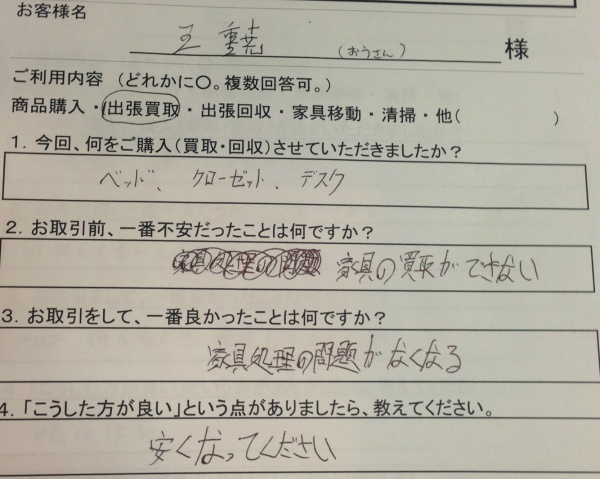 お客様名
王 (おうさん) 様
ご利用内容 (どれかに〇。複数回答可。)
商品購入・出張買取・出張回収・家具移動・清掃・他( )
1. 今回、何をご購入(買取・回収)させていただきましたか?
ベッド、クローゼット、デスク
2. お取引前、一番不安だったことは何ですか?
家具処理の問題 家具の買取ができない
3. お取引をして、一番良かったことは何ですか?
家具処理の問題がなくなる
4. 「こうした方が良い」という点がありましたら、教えてください。
安くなってください